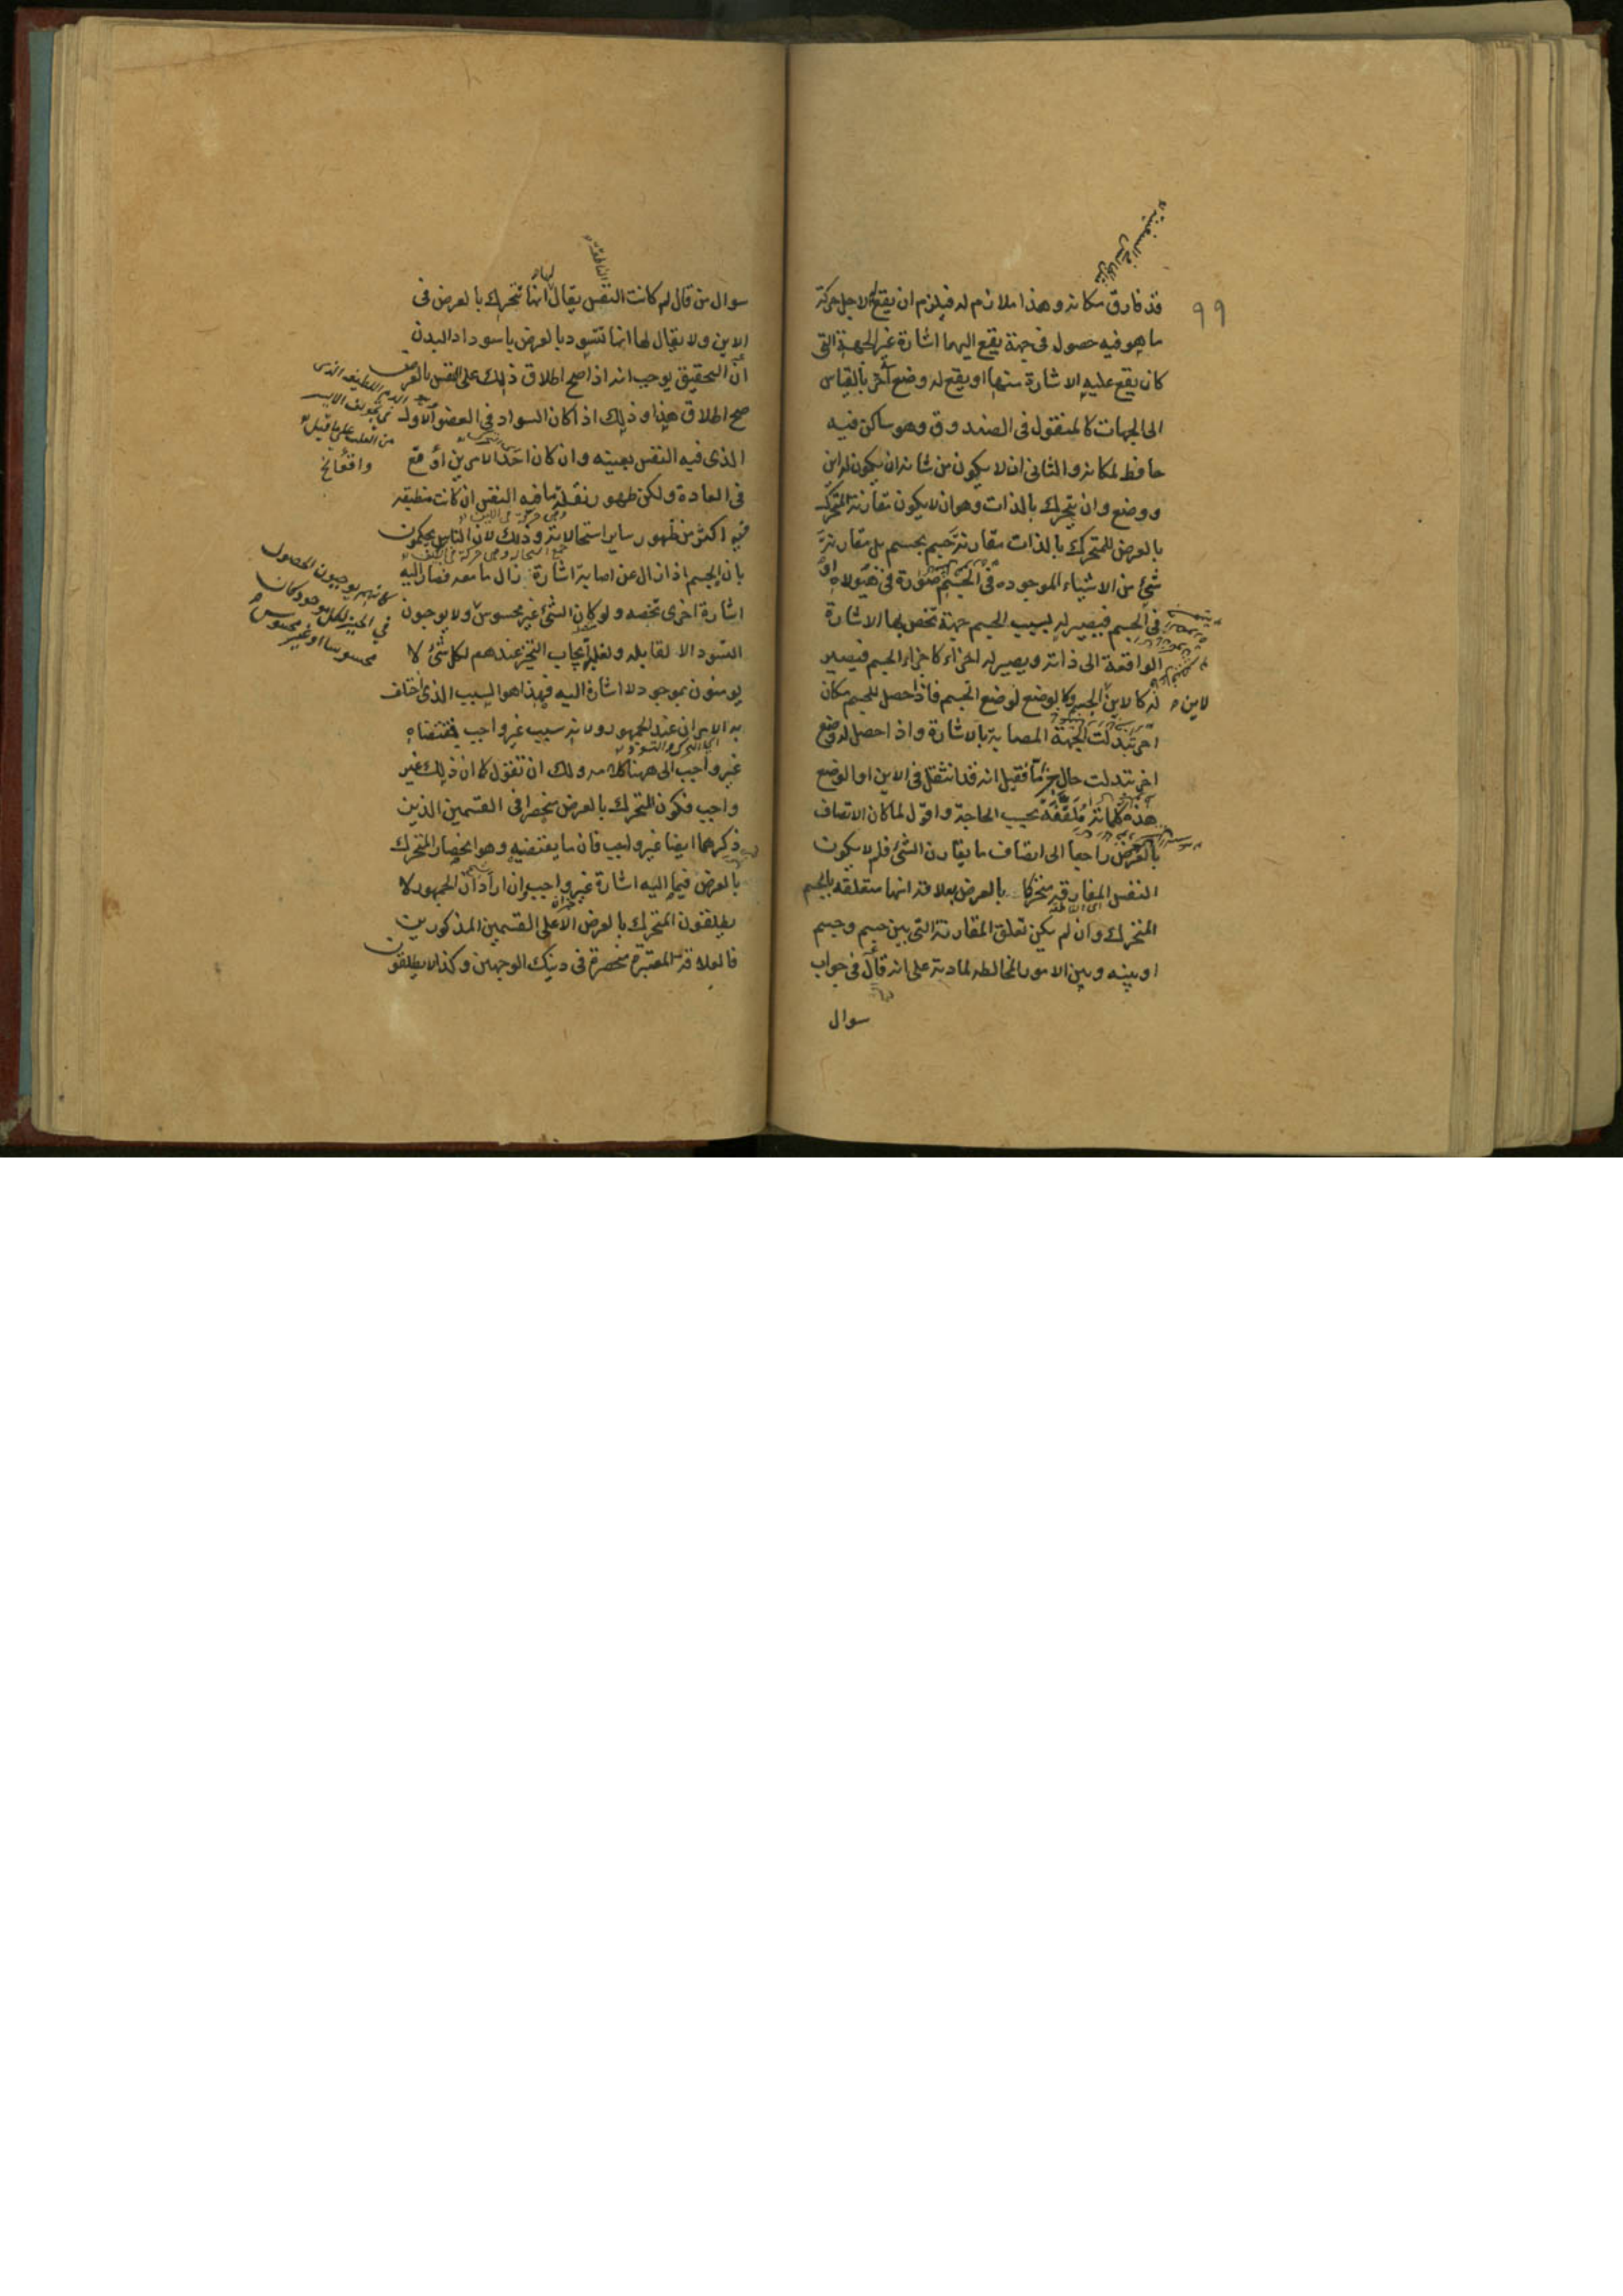 ٩٩
قد فارق مكانه وهذا ملازم له فيلزم ان يقع لاجل حركة
ما هو فيه حصول فى جهة يقع اليهما اشارة غير الجهة التى
كان يقع عليه الاشارة منها او يقع له وضع آخر بالقياس
الى الجهات كالمنقول فى الصندوق وهو ساكن فيه
حافظ لمكانه والثانى ان لا يكون من شانه ان يكون له اين
ووضع وان يتحرك بالذات وهو ان لا يكون مقارنة المتحرك
بالعرض للمتحرك بالذات مقارنة جسم بجسم بل مقارنة
شئ من الاشياء الموجوده فى الجسم صورة فى هيولاه او
فى الجسم فيصير له بسبب الجسم جهة تخص بها الاشارة
الواقعة الى ذاته ويصير له اجزاء كاجزاء الجسم فيصير
له كالاين لاين الجسم وكالوضع لوضع الجسم فاذا حصل للجسم مكان
اخر تبدلت الجهة المصابة بالاشارة واذا حصل له وضع
اخر تبدلت حال جزء ما فقيل انه قد انتقل فى الاين او الوضع
هذه كلماته ملفقة بحسب الحاجة واقول لما كان الاتصاف
بالعرض راجعا الى اتصاف ما يقارن الشئ فلم لا يكون
النفس المفارقه متحركا بالعرض بعلاقة انها متعلقه بالجسم
المتحرك وان لم يكن تعلق المقارنة التى بين جسم وجسم
او بينه وبين الامور المخالطه لمادته على انه قال فى جواب
سوال
سوال من قال لم كانت النفس يقال انها تتحرك بالعرض فى
الاين ولا يقال لها انها تتسود بالعرض باسوداد البدن
ان التحقيق يوجب انه اذا صح اطلاق ذلك على النفس بالعرض
صح اطلاق هذا وذلك اذا كان السواد فى العضو الاول
الذى فيه النفس بعينه وان كان احد الامرين اوقع
فى العادة ولكن ظهور نقلة ما فيه النفس ان كانت منطبقه
فيه اكثر من ظهور ساير استحالاته وذلك لان الناس يحكمون
بان الجسم اذا زال عن اصابة اشارة زال ما معه فصار اليه
اشارة اخرى تخصه ولو كان الشئ غير محسوس ولا يوجبون
التسود الا لقابله ولغلبة ايجاب التحيز عندهم لكل شئ لا
يومنون بموجود لا اشارة اليه فهذا هو السبب الذى اختلف
به الامران عند الجمهور ولانه سبب غير واجب فمقتضاه
غير واجب الى ههنا كلامه ولك ان تقول كما ان ذلك غير
واجب فكون المتحرك بالعرض منحصرا فى القسمين الذين
ذكرهما ايضا غير واجب فان ما يقتضيه وهو انحصار المتحرك
بالعرض فيما اليه اشارة غير واجب وان اراد ان الجمهور لا
يطلقون المتحرك بالعرض الا على القسمين المذكورين
فالعلاقة المعتبرة منحصرة فى دينك الوجهين وكذا لا يطلقون
كانهم يوجبون الحصول
في الحيز لكل موجود كان
محسوسا او غير محسوس